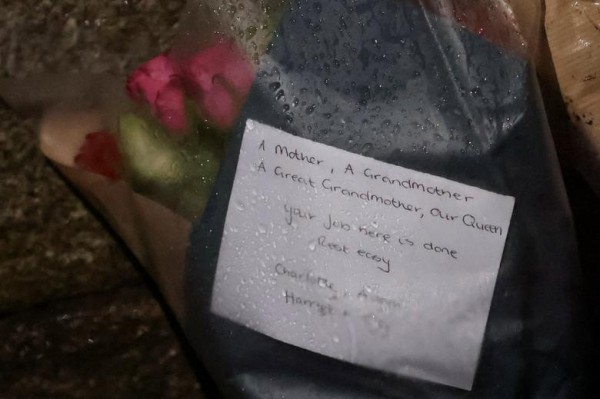 A Mother, A Grandmother
A Great Grandmother, Our Queen
your Job here is done
Rest easy
Charlotte,